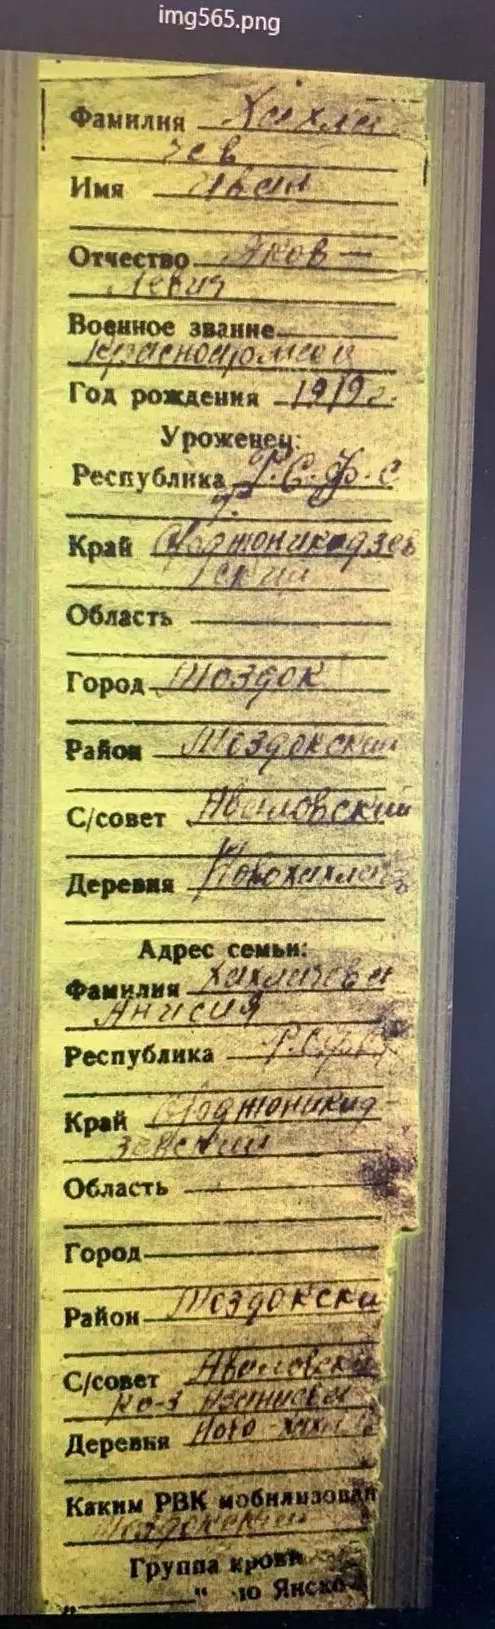 img565.png
Фамилия Хахла
чев
Имя Иван
Отчество Яков-
левич
Военное звание
Красноармеец
Год рождения 1919 г.
Уроженец:
Республика Р.С.Ф.С
Р.
Край Орджоникидзев
ский
Область
Город Моздок
Район Моздокский
С/совет Аваловский
Деревня
Адрес семьи:
Фамилия Хахлачева
Анисия
Республика Р.С.Ф.С
Край Орджоникид-
зевский
Область
Город
Район Моздокски
С/совет Аваловски
Деревня Ново-
Каким РВК мобилизован
Моздокский
Группа крови
„ “ по Янско